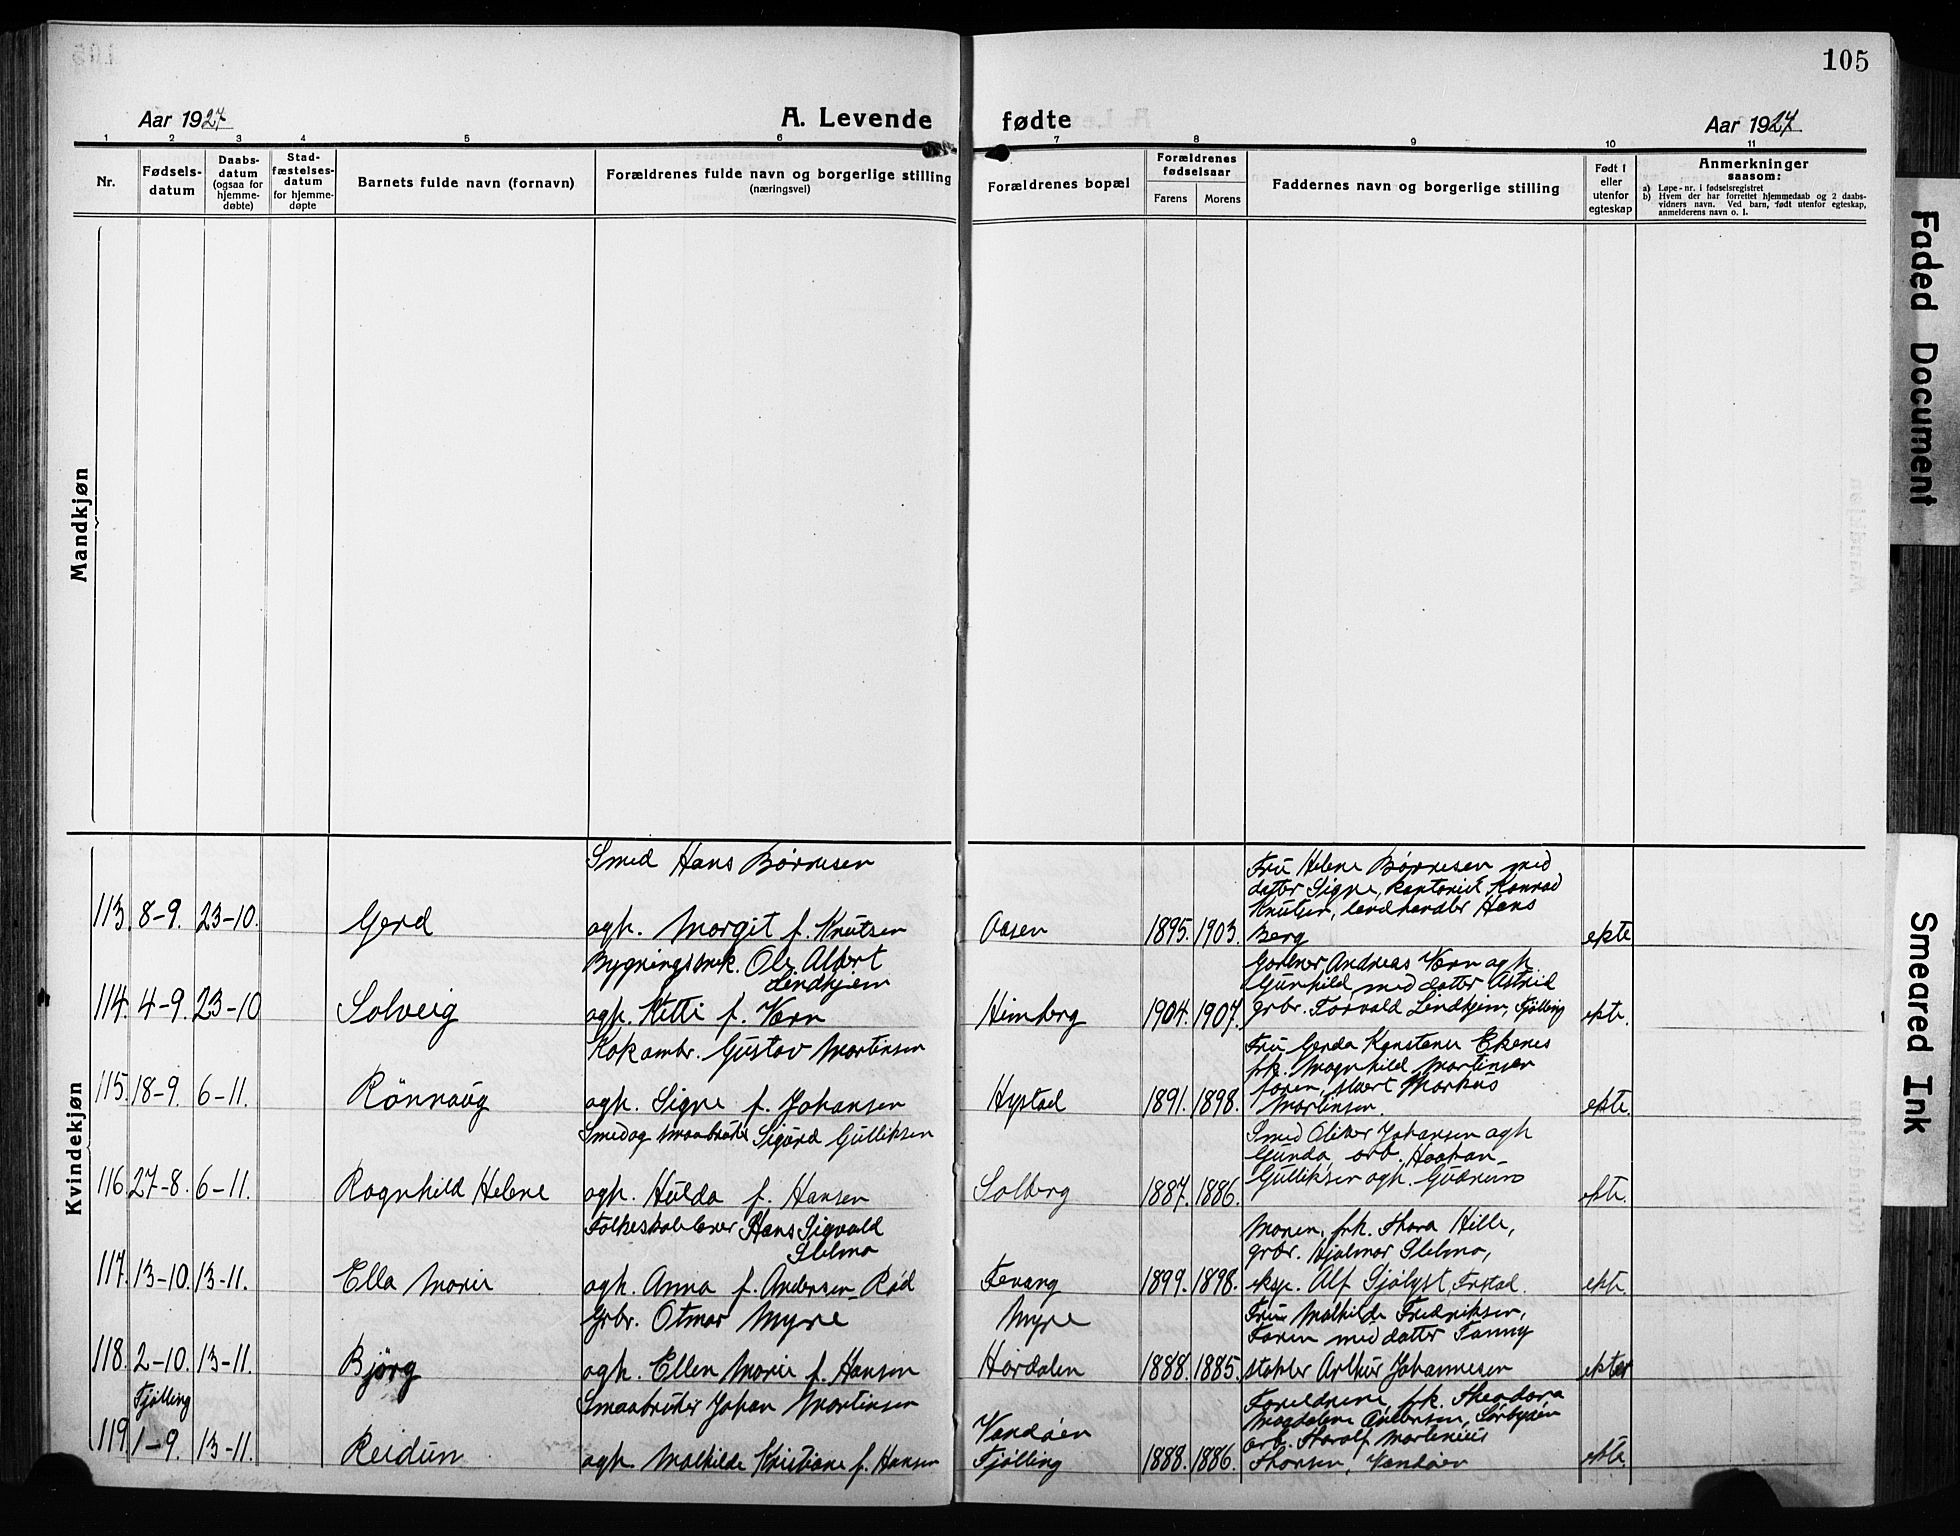 105
Aar 1927
A. Levende fødte
Aar 1927
1 2 3 4 5 6 7 8 9 10 11
Nr.
Fødsels-
datum
Daabs-
datum
(ogsaa for
hjemme-
døbte)
Stad-
fæstelses-
datum
for hjemme-
døpte
Barnets fulde navn (fornavn)
Forældrenes fulde navn og borgerlige stilling
(næringsvei)
Forældrenes bopæl
Forældrenes
fødselsaar
Farens Morens
Faddernes navn og borgerlige stilling
Født i
eller
utenfor
egteskap
Anmerkninger
saasom:
a) Løpe-nr. i fødselsregistret
b) Hvem der har forrettet hjemmedaab og 2 daabs-
vidners navn. Ved barn, født utenfor egteskap,
anmelderens navn o. l.
Mandkjøn
Kvindekjøn
113. 8-9. 23-10. Gerd
Smed Hans Börresen
agh. Margit f. Knutsen
Aasen 1895. 1903.
Fru Helene Börresen med
datter Signe, kontorist Konrad
Knutsen, landhandler Hans
Berg
ekte
114. 4-9. 23-10 Solveig
Bygningssnek. Ole Albert
Lindhjem
agh. Kitti f. Værn
Himberg 1904. 1907.
Gartner Andreas Værn agh.
Gunhild med datter Astrid
grbr. Torvald Lindhjem, Fjölling
ekte.
115. 18-9. 6-11. Rönnaug
Kokambr. Gustav Martinsen
agh. Signe f. Johansen
Hystad 1891. 1898.
Fru Gerda Konstanse Ekenes
frk. Magnhild Martinsen
faren, Markus
Martinsen.
ekte
116. 27-8. 6-11. Ragnhild Helene
Smed og smaabruker Sigurd Gulliksen
agh. Hulda f. Hansen
Solberg 1887. 1886.
Smed Oliver Johansen agh
Gunda, arb. Haakon
Gulliksen agh. Gudrun
ekte.
117. 13-10. 13-11. Ella Marie
Folkeskolelærer Hans Sigvald
agh. Anna f. Andersen Röd
Fevang 1899. 1898.
Moren, frk. Thora Hille,
grbr. Hjalmar
eksp. Alf Sjölyst, Fristad.
ekte
118. 2-10. 13-11. Björg
Grbr. Otmar Myre
agh. Ellen Marie f. Hansen
Myre
Hördalen 1888. 1885.
Fru Mathilde Fredriksen,
Faren med datter Fanny
stoker Arthur Johannesen
ekte
Fjölling
119. 1-9. 13-11. Reidun
Smaabruker Johan Martinsen
agh. Mathilde Kristiane f. Hansen
Vandöen
Fjölling 1888. 1886.
Foreldrene, frk. Theodora
Magdalene Andersen, Sörbyöen
arb. Tharalf Martinius
Thorsen, Vandöen
ekte
Faded Document
Smeared Ink